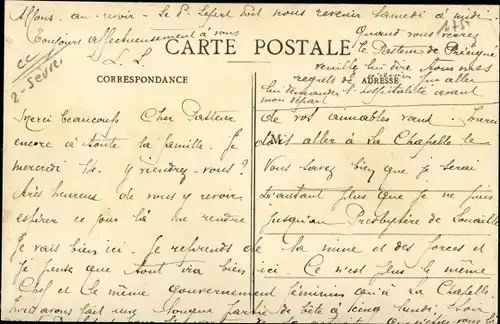 Allons, au revoir - Le Dr Lefert doit nous revenir Samedi à midi
Toujours affectueusement à vous
L. L. L.
Quand vous verrez
le Pasteur de
veuillez lui dire tous mes
regrets de n'avoir pu aller
lui demander l'hospitalité avant
mon départ
2-Sèvres
CARTE POSTALE
CORRESPONDANCE
ADRESSE
Cher Pasteur
Merci beaucoup de vos aimables vœux. Merci
encore à toute la famille. Je dois aller à La Chapelle le
mercredi 14. Y viendrez-vous? Vous savez bien que je serai
très heureux de vous y revoir d'autant plus que je ne puis
espérer ce jour là me rendre jusqu'au Presbytère de
Je vais bien ici. Je reprends de la mine et des forces et
je pense que tout ira bien ici. Ce n'est plus le même
Chef et le même gouvernement féminin qu'à La Chapelle
avons fait une longue partie de bête à cinq lundi soir